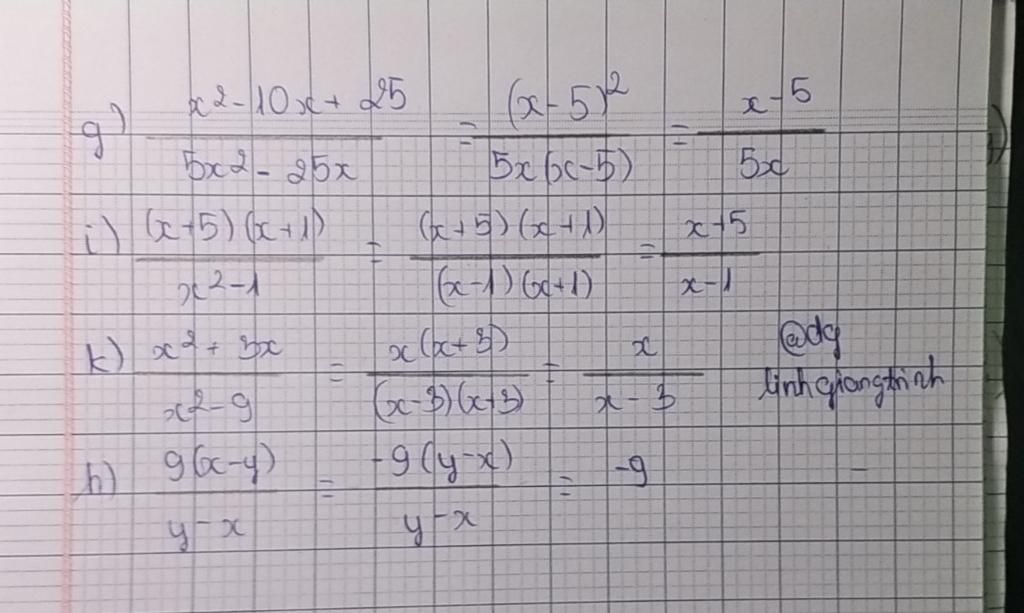 g) \frac{x^2-10x+25}{5x^2-25x} = \frac{(x-5)^2}{5x(x-5)} = \frac{x-5}{5x}
i) \frac{(x+5)(x+1)}{x^2-1} = \frac{(x+5)(x+1)}{(x-1)(x+1)} = \frac{x+5}{x-1}
k) \frac{x^2+3x}{x^2-9} = \frac{x(x+3)}{(x-3)(x+3)} = \frac{x}{x-3}
@dg
linhgiangtrinh
h) \frac{9(x-y)}{y-x} = \frac{-9(y-x)}{y-x} = -9